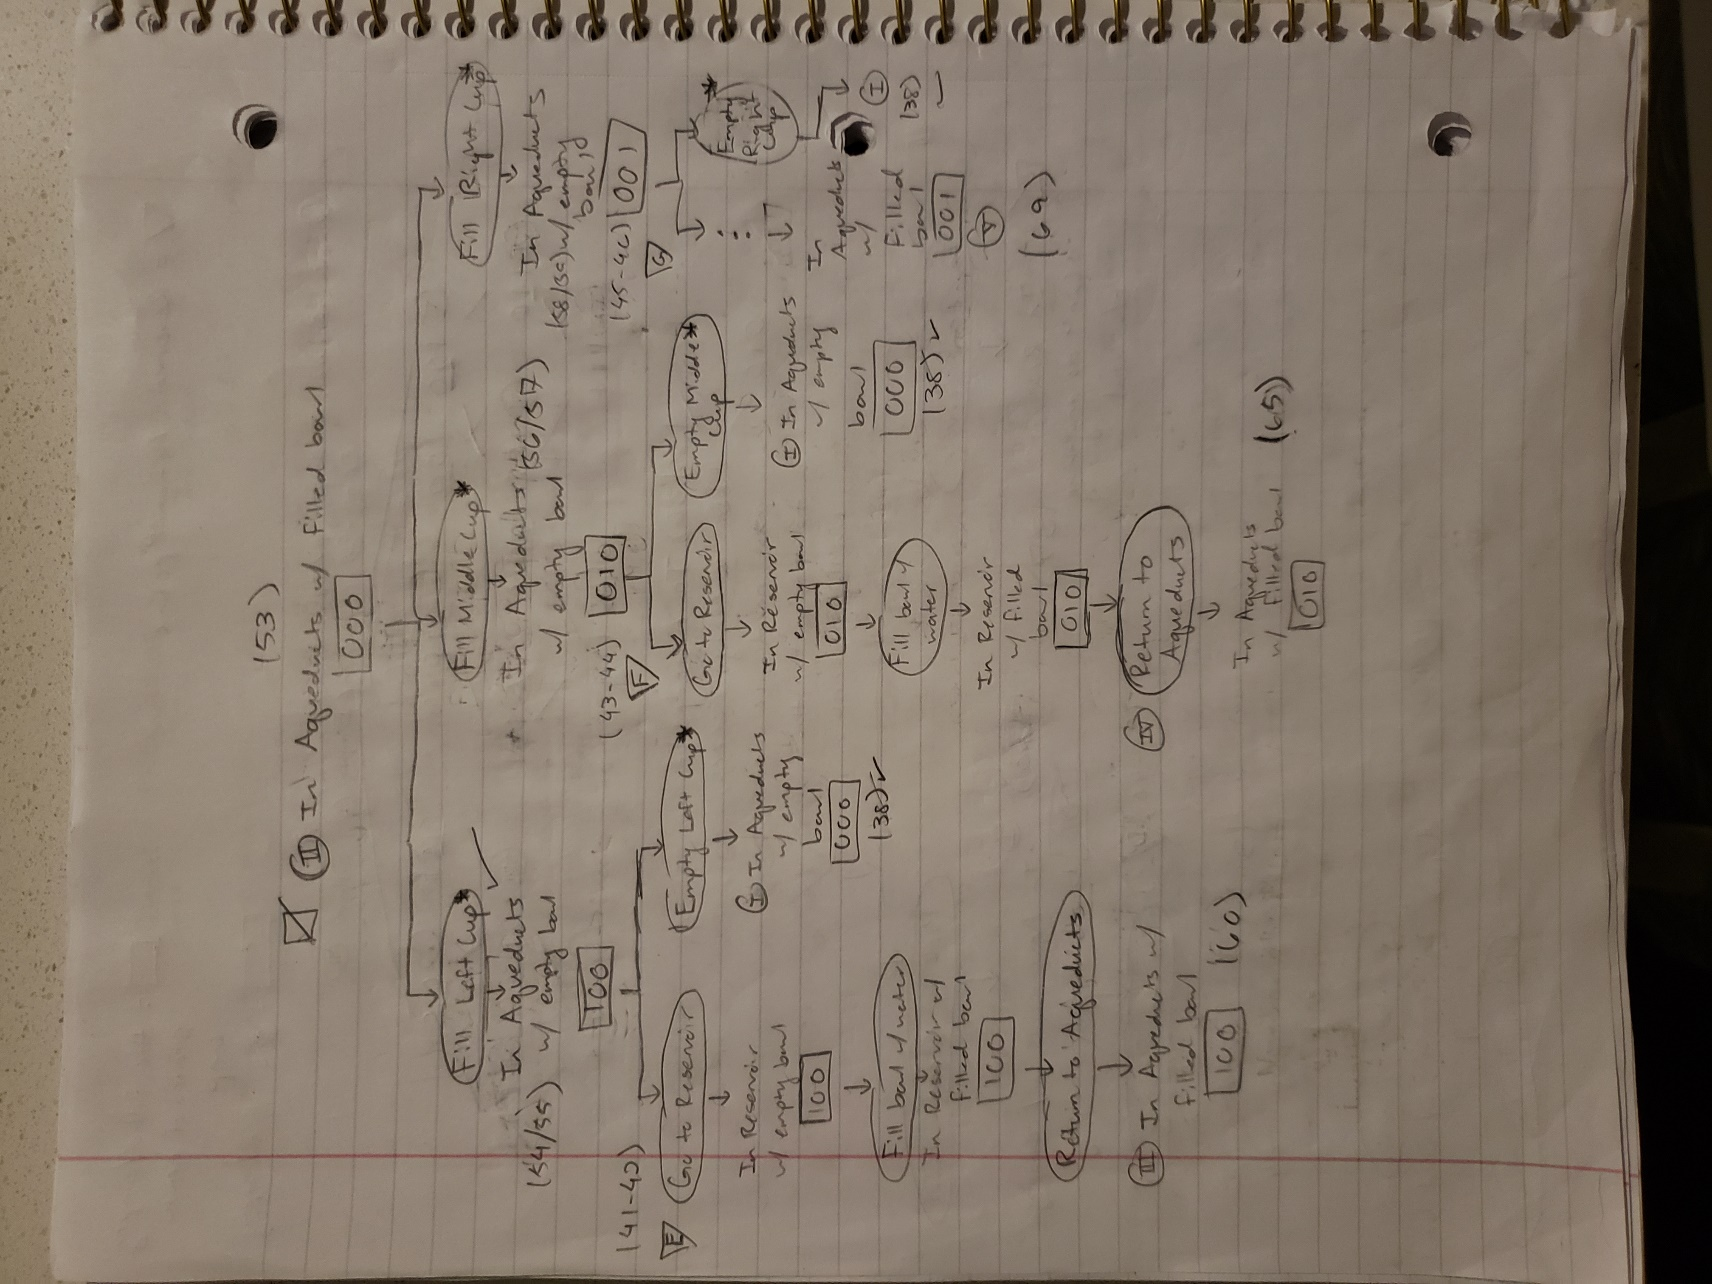 (53)
II In Aqueducts w/ Filled bowl
000
Fill Left Cup*
In Aqueducts
(54/55) w/ empty bowl
100
(41-42)
E
Go to Reservoir
In Reservoir
w/ empty bowl
100
Fill bowl w/ water
In Reservoir w/
filled bowl
100
Return to Aqueducts
III In Aqueducts w/
filled bowl
100 (60)
Empty Left Cup*
I In Aqueducts
w/ empty
bowl
000
(38) ✓
Fill Middle Cup*
In Aqueducts (56/57)
w/ empty bowl
010
(43-44)
F
Go to Reservoir
In Reservoir
w/ empty bowl
010
Fill bowl w/
water
In Reservoir
w/ filled
bowl
010
IV Return to
Aqueducts
In Aqueducts
w/ filled bowl (65)
010
Empty Middle*
Cup
I In Aqueducts
w/ empty
bowl
000
(38) ✓
Fill Right Cup*
In Aqueducts
(58/59) w/ empty
bowl
(45-46) 001
G
In
Aqueducts
w/
Filled
bowl
001
V
(69)
Empty
Right
Cup
*
I
(38)
✓